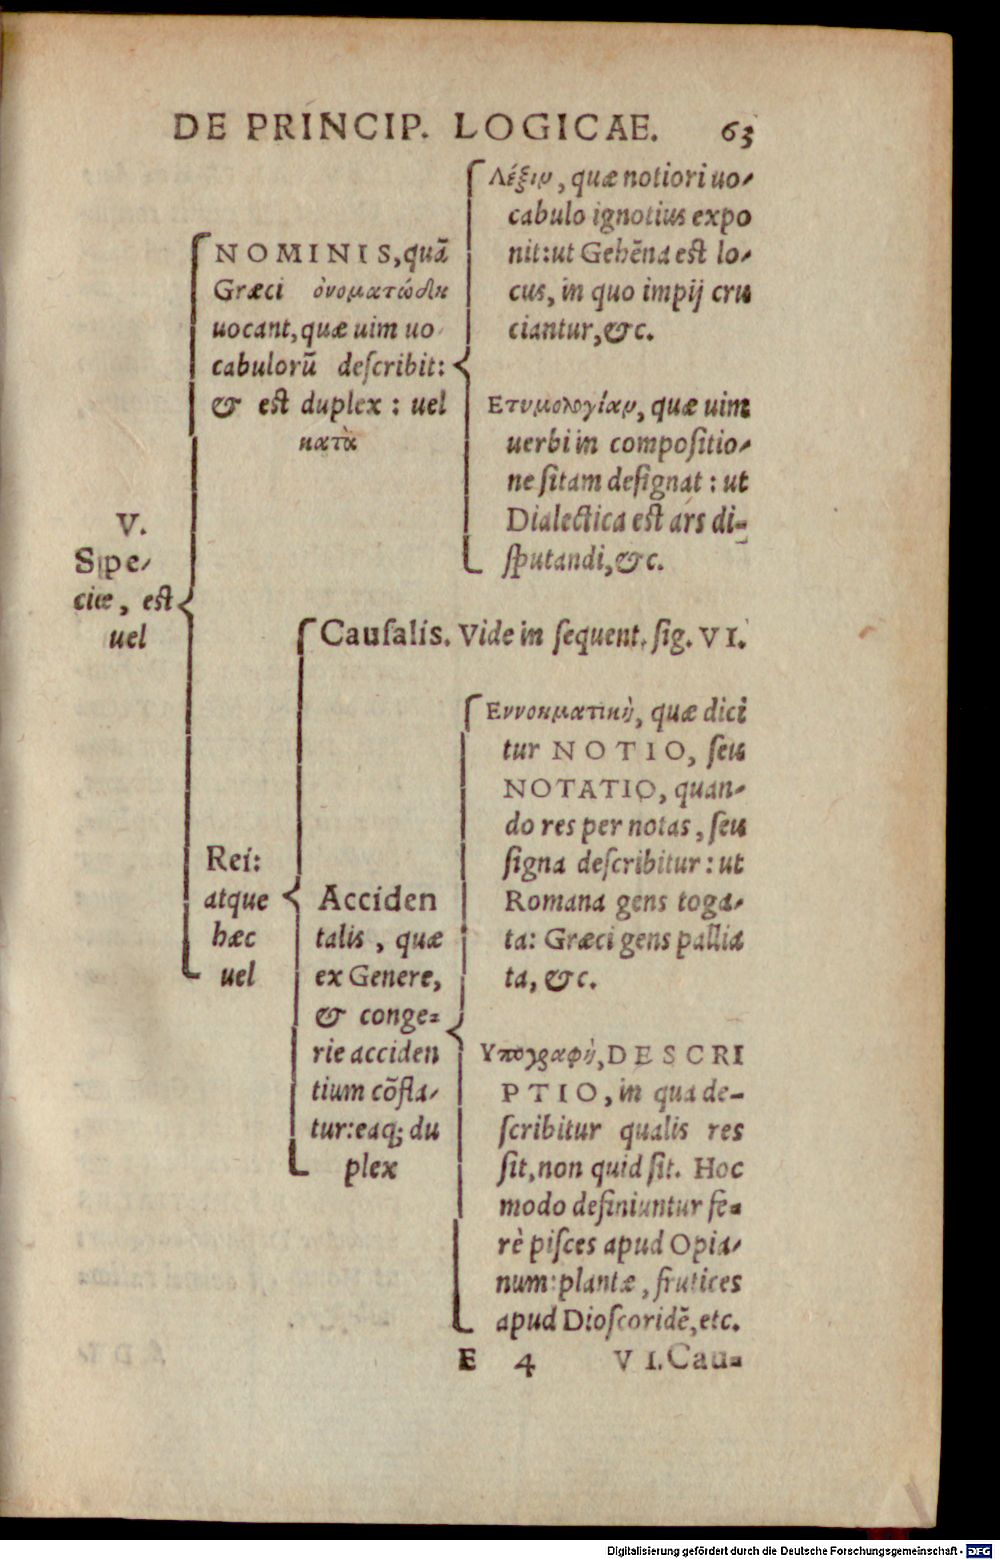 DE PRINCIP. LOGICAE. 63
V.
Spe-
ciæ, est
uel
NOMINIS, quã
Græci ὀνοματώδη
uocant, quæ uim uo
cabulorũ describit:
& est duplex: uel
κατὰ
Λέξιν, quæ notiori uo-
cabulo ignotius expo
nit: ut Gehēna est lo-
cus, in quo impij cru
ciantur, &c.
Ετυμολογίαν, quæ uim
uerbi in compositio-
ne sitam designat: ut
Dialectica est ars di-
sputandi, &c.
Rei:
atque
hæc
uel
Causalis. Vide in sequent. fig. VI.
Acciden
talis, quæ
ex Genere,
& conge-
rie acciden
tium cõfla-
tur: eaq; du
plex
Εννοηματικὴ, quæ dici
tur NOTIO, seu
NOTATIO, quan-
do res per notas, seu
signa describitur: ut
Romana gens toga-
ta: Græci gens pallia
ta, &c.
Υπογραφὴ, DESCRI
PTIO, in qua de-
scribitur qualis res
sit, non quid sit. Hoc
modo definiuntur fe-
rè pisces apud Opia-
num: plantæ, frutices
apud Dioscoridẽ, etc.
E 4 VI. Cau-
Digitalisierung gefördert durch die Deutsche Forschungsgemeinschaft - DFG